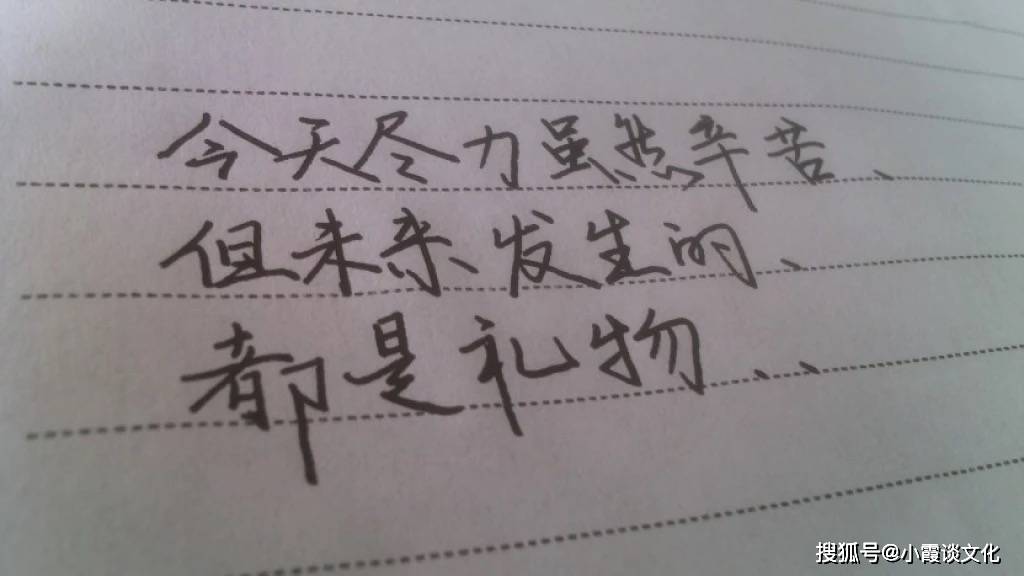 今天尽力虽然辛苦、
但未来发生的、
都是礼物、、
搜狐号@小霞谈文化